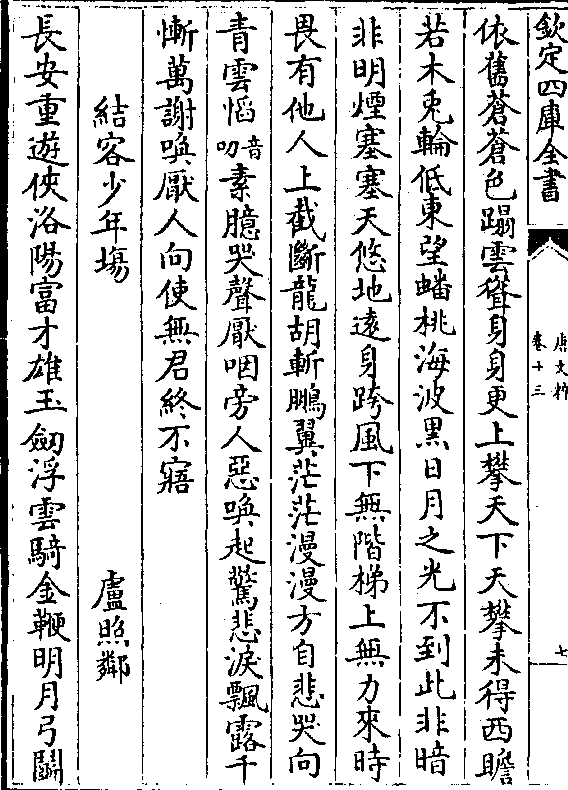 欽定四庫全書
唐文粹
卷十三
七
依舊蒼蒼色蹋雲聳身身更上攀天下天攀未得西瞻
若木兎輪低東望蟠桃海波黒日月之光不到此非暗
非明煙塞塞天悠地逺身跨風下無階梯上無力來時
畏有他人上截斷龍胡斬鵬翼茫茫漫漫方自悲哭向
青雲慆音叨素臆哭聲厭咽旁人惡喚起驚悲淚飄露千
慚萬謝喚厭人向使無君終不寤
結客少年塲 盧照鄰
長安重遊俠洛陽富才雄玉劒浮雲騎金鞭明月弓鬬